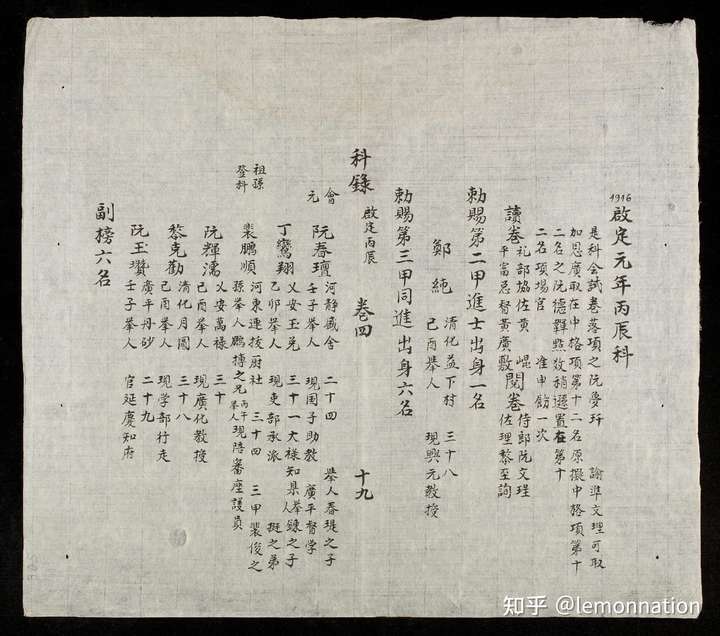 1916
啟定元年丙辰科
是科会試卷落項之阮夢玶 諭準文理可取
加恩廣取在中格項第十二名原擬中格項第十
二名之阮德鞸點数稍遜置在第十
二名項場官 准申飭一次
讀卷礼部協佐黄 崐 閱卷侍郎阮文珵
平富总督黄廣敷 佐理黎至詢
勅賜第二甲進士出身一名
鄭純 清化益下村 三十八
己酉舉人 現興元教授
勅賜第三甲同進出身六名
科錄 啟定丙辰 卷四 十九
會元 阮春瓚 河静 舍 二十四 舉人春堤之子
壬子舉人 現国子助教 廣平督学
丁鸞翔 乂安玉 三十一 大様知県舉人錬之子
乙卯舉人 現吏部承派 擬之弟
祖孫登科
裴鵬順 河東連拔厨社 三十四 三甲裴俊之
孫舉人鵬摶之兄丙午舉人 現陪審座議員
阮輝濡 乂安萬様 三十
己酉舉人 現廣化教授
黎克勤 清化月圓 三十八
己酉舉人 現学部行走
阮玉瓚 廣平丹砂 二十九
壬子舉人 官延慶知府
副榜六名
知乎 @lemonnation